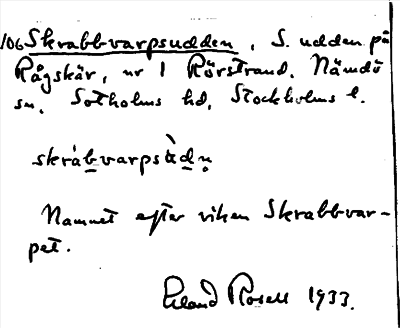 106 Skrabbvarpsudden, S. udden på
Rågskär, nr 1 Rörstrand. Nämdö
sn. Sotholms hd, Stockholms l.
skràbvarpsùdn̥
Namnet efter viken Skrabbvar-
pet.
Erland Rosell 1933.